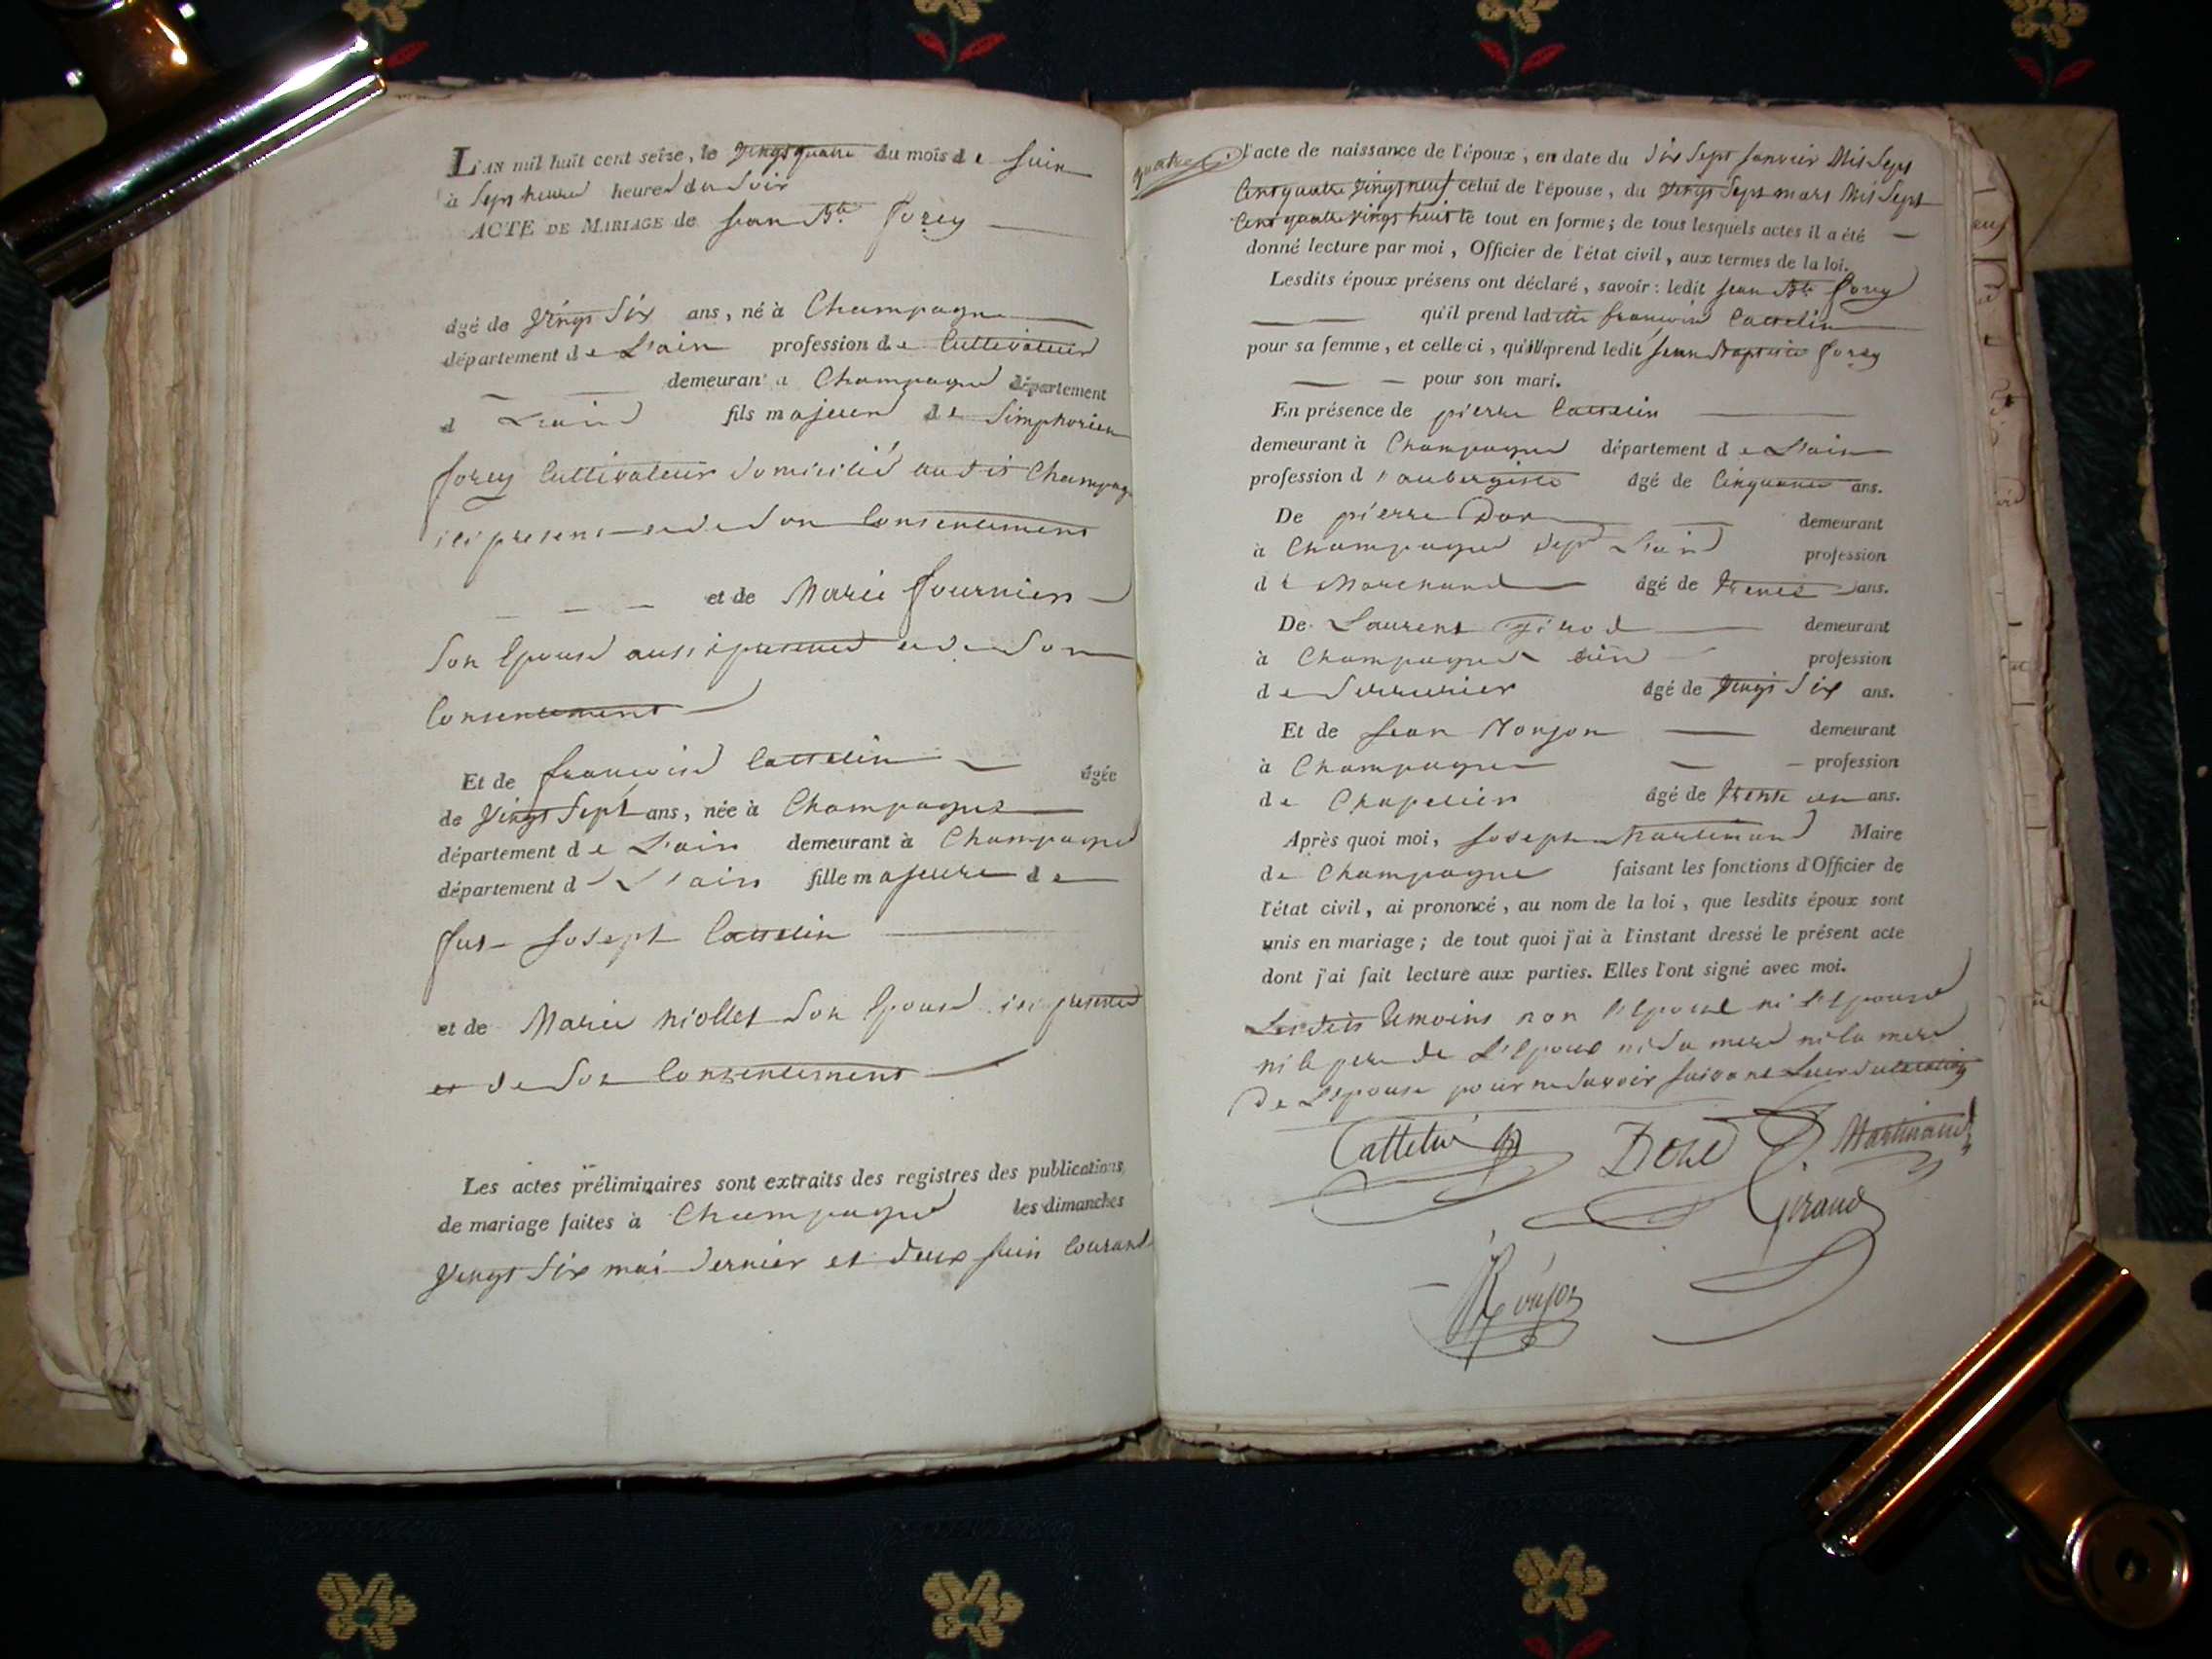 L'AN mil huit cent seize, le vingt quatre du mois de juin
à Sept heure heures du Soir
ACTE DE MARIAGE de jean Bte forey
âgé de vingt Six ans, né à Champagne
département de L'ain profession de Cultivateur
demeurant à Champagne département
d L'ain fils majeur de Simphorien
forey Cultivateur domicilié audit Champagne
ici present et de Son Consentement
et de Marie fournier
Son Epouse aussi presente et de Son
Consentement
Et de francoise Cattelin âgée
de vingt Sept ans, née à Champagne
département de L'ain demeurant à Champagne
département d L'ain fille majeure de
fut Joseph Cattelin
et de Marie niollet Son Epouse ici presente
et de Son Consentement
Les actes préliminaires sont extraits des registres des publications
de mariage faites à Champagne les dimanches
vingt Six mai dernier et deux juin Courant
quatre
l'acte de naissance de l'époux, en date du dix Sept janvier Mil Sept
Cent quatre vingt neuf celui de l'épouse, du vingt Sept mars Mil Sept
Cent quatre vingt huit le tout en forme; de tous lesquels actes il a été
donné lecture par moi, Officier de l'état civil, aux termes de la loi.
Lesdits époux présens ont déclaré, savoir: ledit jean Bte forey
qu'il prend ladite francoise Cattelin
pour sa femme, et celle ci, qu'ill prend ledit jean Baptiste forey
pour son mari.
En présence de pierre Cattelin
demeurant à Champagne département de L'ain
profession d'aubergiste âgé de Cinquante ans.
De pierre demeurant
à Champagne dept L'ain profession
de Marchand âgé de trente ans.
De Laurent demeurant
à Champagne ain profession
de Serrurier âgé de vingt Six ans.
Et de jean Monjon demeurant
à Champagne profession
de Chapelier âgé de trente un ans.
Après quoi moi, joseph Martinand Maire
de Champagne faisant les fonctions d'Officier de
l'état civil, ai prononcé, au nom de la loi, que lesdits époux sont
unis en mariage; de tout quoi j'ai à l'instant dressé le présent acte
dont j'ai fait lecture aux parties. Elles l'ont signé avec moi.
Lesdits temoins non l'Epoux ni l'Epouse
ni le pere de L'Epoux ni Sa mere ni la mere
De L'Epouse pour ne Savoir Suivant Leur
Cattelin Martinand